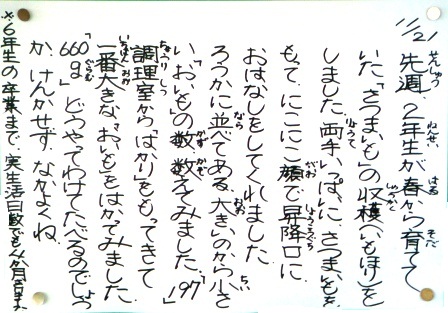 11/21
先週、2年生が春から育てて
いた「さつまいも」の収穫(いもほり)を
しました。両手いっぱいに、さつまいもを
もって、にこにこ顔で昇降口に
おはなしをしてくれました。
ろうかに並べてある、大きいのから小さ
い、「おいもの数」数えてみました。「97」
調理室から「はかり」をもってきて
一番大きな「おいも」をはかてみました。
「660g」どうやってわけてたべるのでしょう
か、けんかせず、なかよくね、
※6年生の卒業まで、実生活日数でも